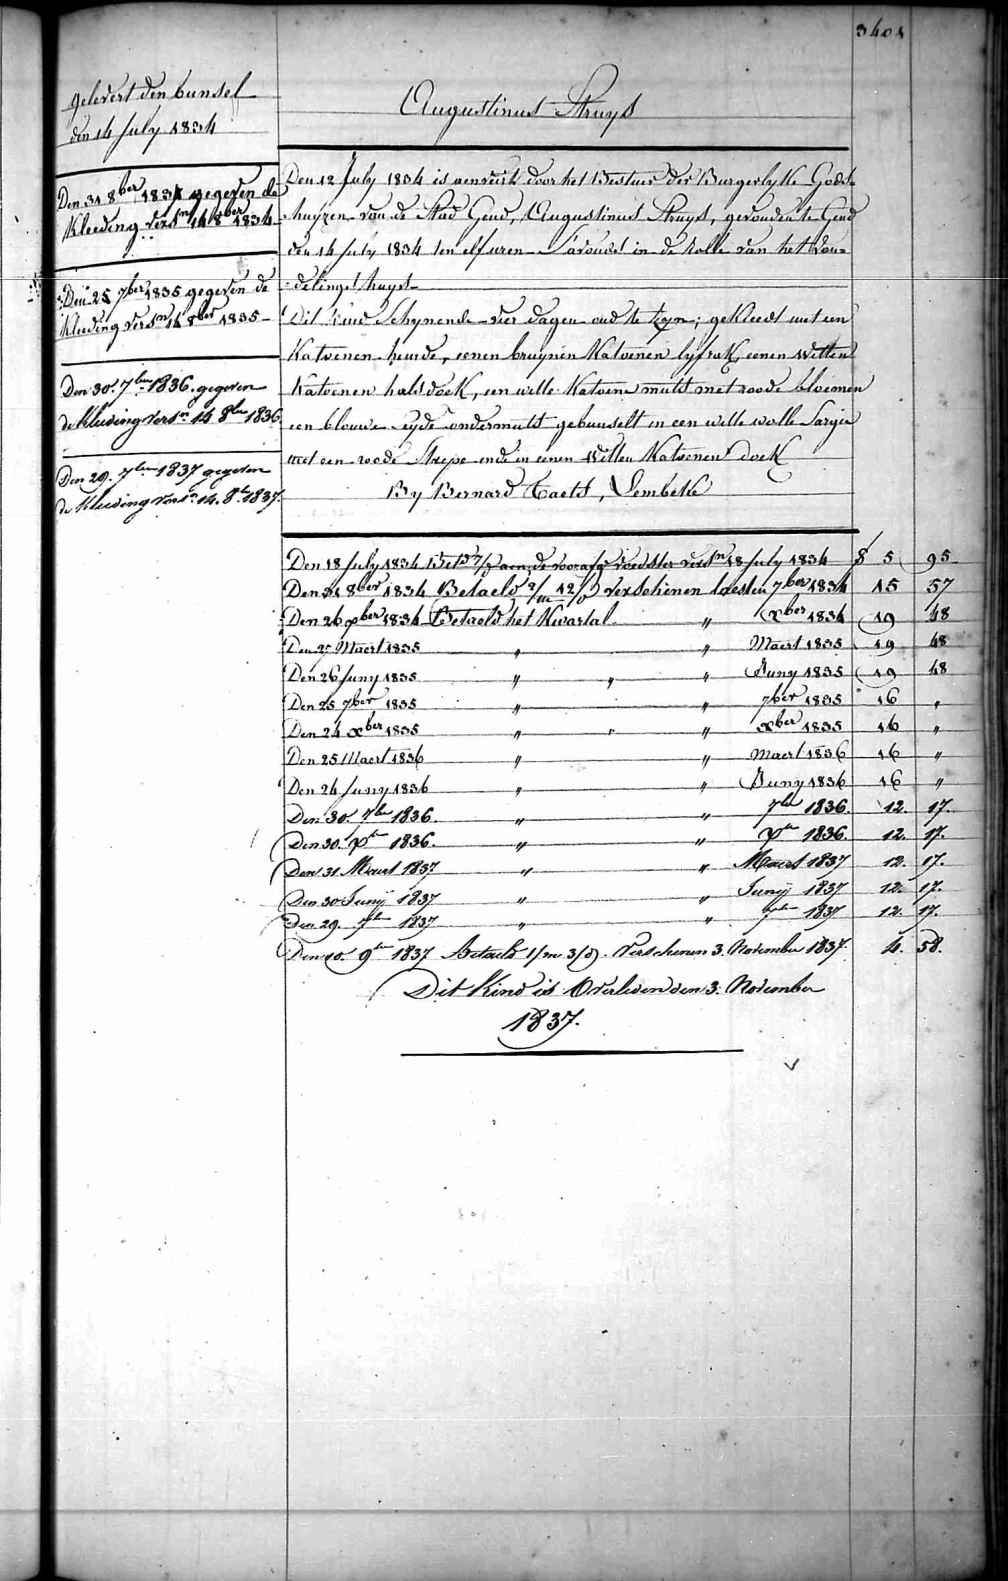 3401
gelevert den bunsel
den 14 July 1834
Den 31 8ber 1834 gegeven de
Kleeding versn 14 8ber 1834
Den 25 7ber 1835 gegeven de
Kleeding versn 14 8ber 1835
Den 30. 7ber 1836. gegeven
de Kleeding versn 14 8ber 1836
Den 29. 7ber 1837 gegeven
de Kleeding versn 14. 8r 1837.
Augustinus Struys
Den 12 July 1834 is aenveirt door het Bestuer der Burgerlyke Gods-
huyzen van de Stad Gend, Augustinus Struys, gevonden te Gend
den 14 July 1834 ten elf uren Savonds in de rolle van het Von-
delings huys
Dit Kind Schynende vier dagen oud te zyn; gekleed met een
Katoenen hemde, eenen bruynen Katoenen lyfrok, eenen witten
Katoenen halsdoek, een witte Katoene muts met roode bloemen
een blauwe zyde ondermuts gebunselt in een witte wolle Sargie
met een roode Strepe ende in eenen witten Katoenen doek
By Bernard Taets, Lembeke
Den 18 July 1834 Bets aen de voorafg voedster versn 18 July 1834 f 5 95
Den 31 8ber 1834 Betaeld 2/m 12/d verschenen laesten 7ber 1834 15 57
Den 26 xber 1834 Betaeld het Kwartal " xber 1834 19 48
Den 27 Maert 1835 " " Maert 1835 19 48
Den 26 Juny 1835 " " " Juny 1835 19 48
Den 25 7ber 1835 " " 7ber 1835 16 "
Den 24 xber 1835 " " " xber 1835 16 "
Den 25 Maert 1836 " " Maert 1836 16 "
Den 24 Juny 1836 " " Juny 1836 16 "
Den 30. 7ber 1836. " " 7ber 1836. 12. 17.
Den 30. xr 1836. " " xr 1836. 12. 17.
Den 31 Maert 1837 " " Maert 1837 12. 17.
Den 30 Junÿ 1837 " " Junÿ 1837 12. 17.
Den 29. 7br 1837 " " 7br 1837 12. 17.
Den 10. 9br 1837 Betaelt 1/m 3/d. Verschenen 3. November 1837. 4. 58.
Dit Kind is Overleden den 3. November
1837.